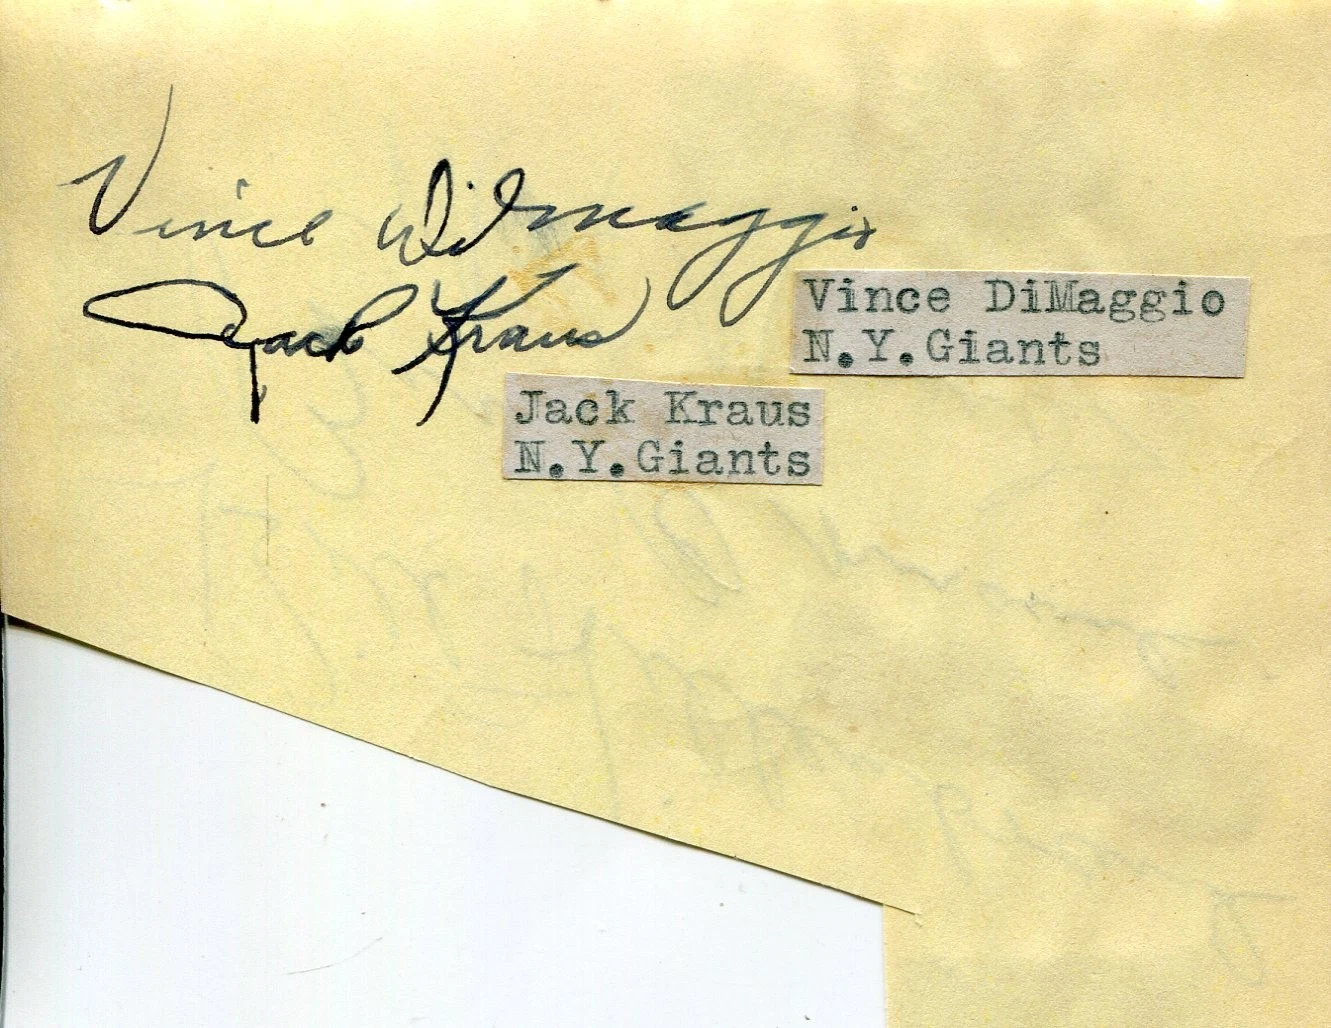 Vince DiMaggio
Jack Kraus
Vince DiMaggio
N.Y.Giants
Jack Kraus
N.Y.Giants